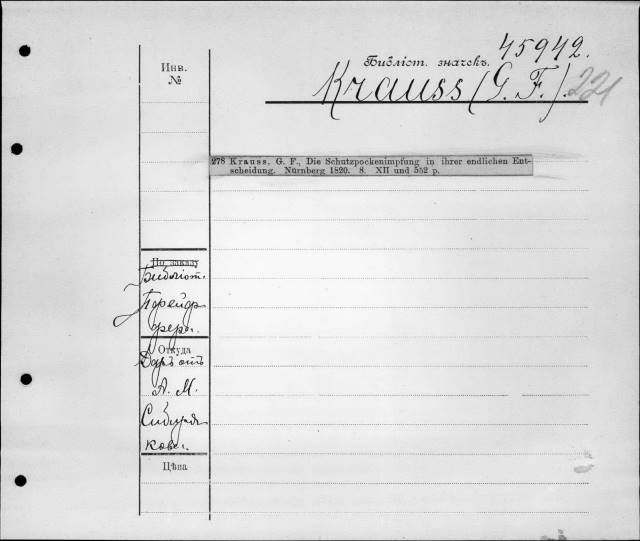 Библіот. значекъ. 45942.
Инв.
№
Krauss (G. F.). 221
278 Krauss, G. F., Die Schutzpockenimpfung in ihrer endlichen Ent-
scheidung. Nürnberg 1820. 8. XII und 552 p.
По заказу
Библіот.
Откуда
Даръ отъ
А. М.
Сибиря
кова.
Цѣна